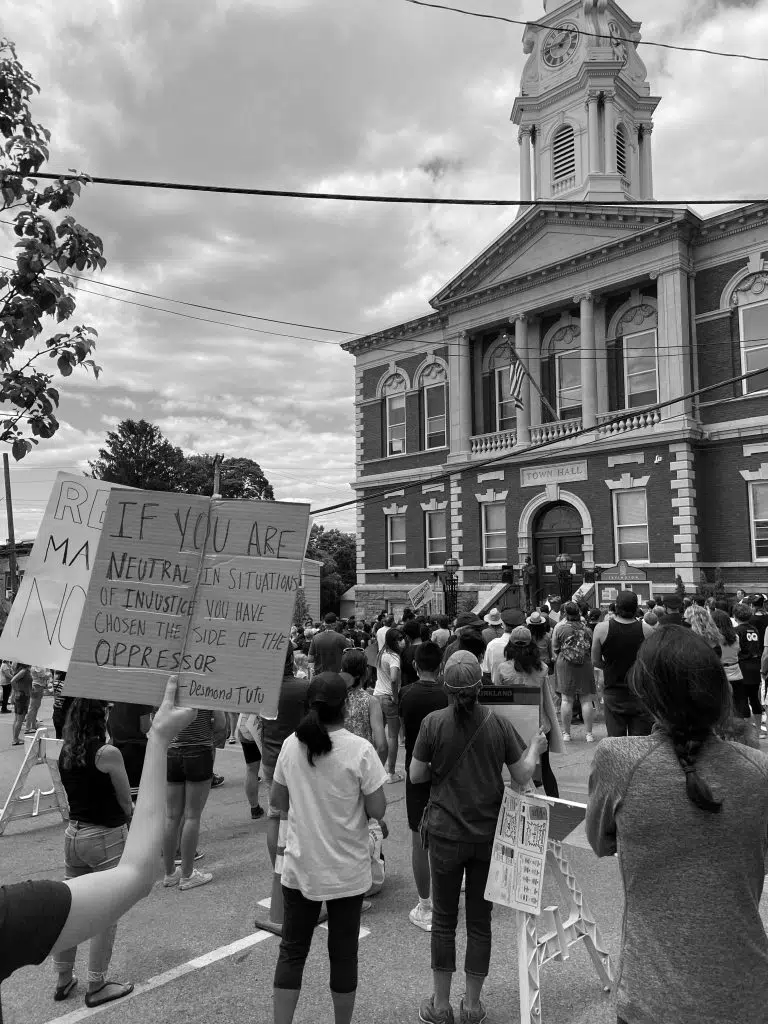 TOWN HALL
RE
MA
NO
IF YOU ARE
NEUTRAL IN SITUATIONS
OF INJUSTICE YOU HAVE
CHOSEN THE SIDE OF THE
OPPRESSOR
-Desmond TuTu
KIRKLAND